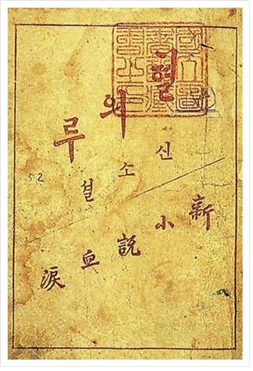 혈의루
신소설
新小說血淚
52